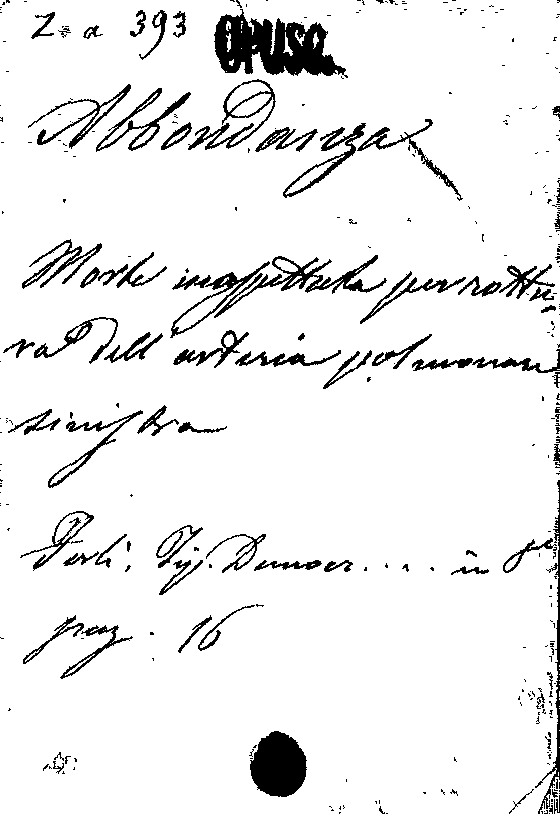 Z. a 393 OPUSC.
Abbondanza
Morte inaspettata per rottu-
ra dell'arteria polmonare
sinistra
Forlì, Tip. Democr.... in 8°
pag. 16